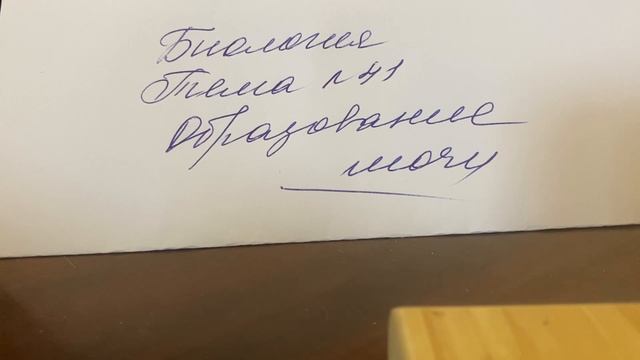 Биология
Тема №41
Образование
мочи